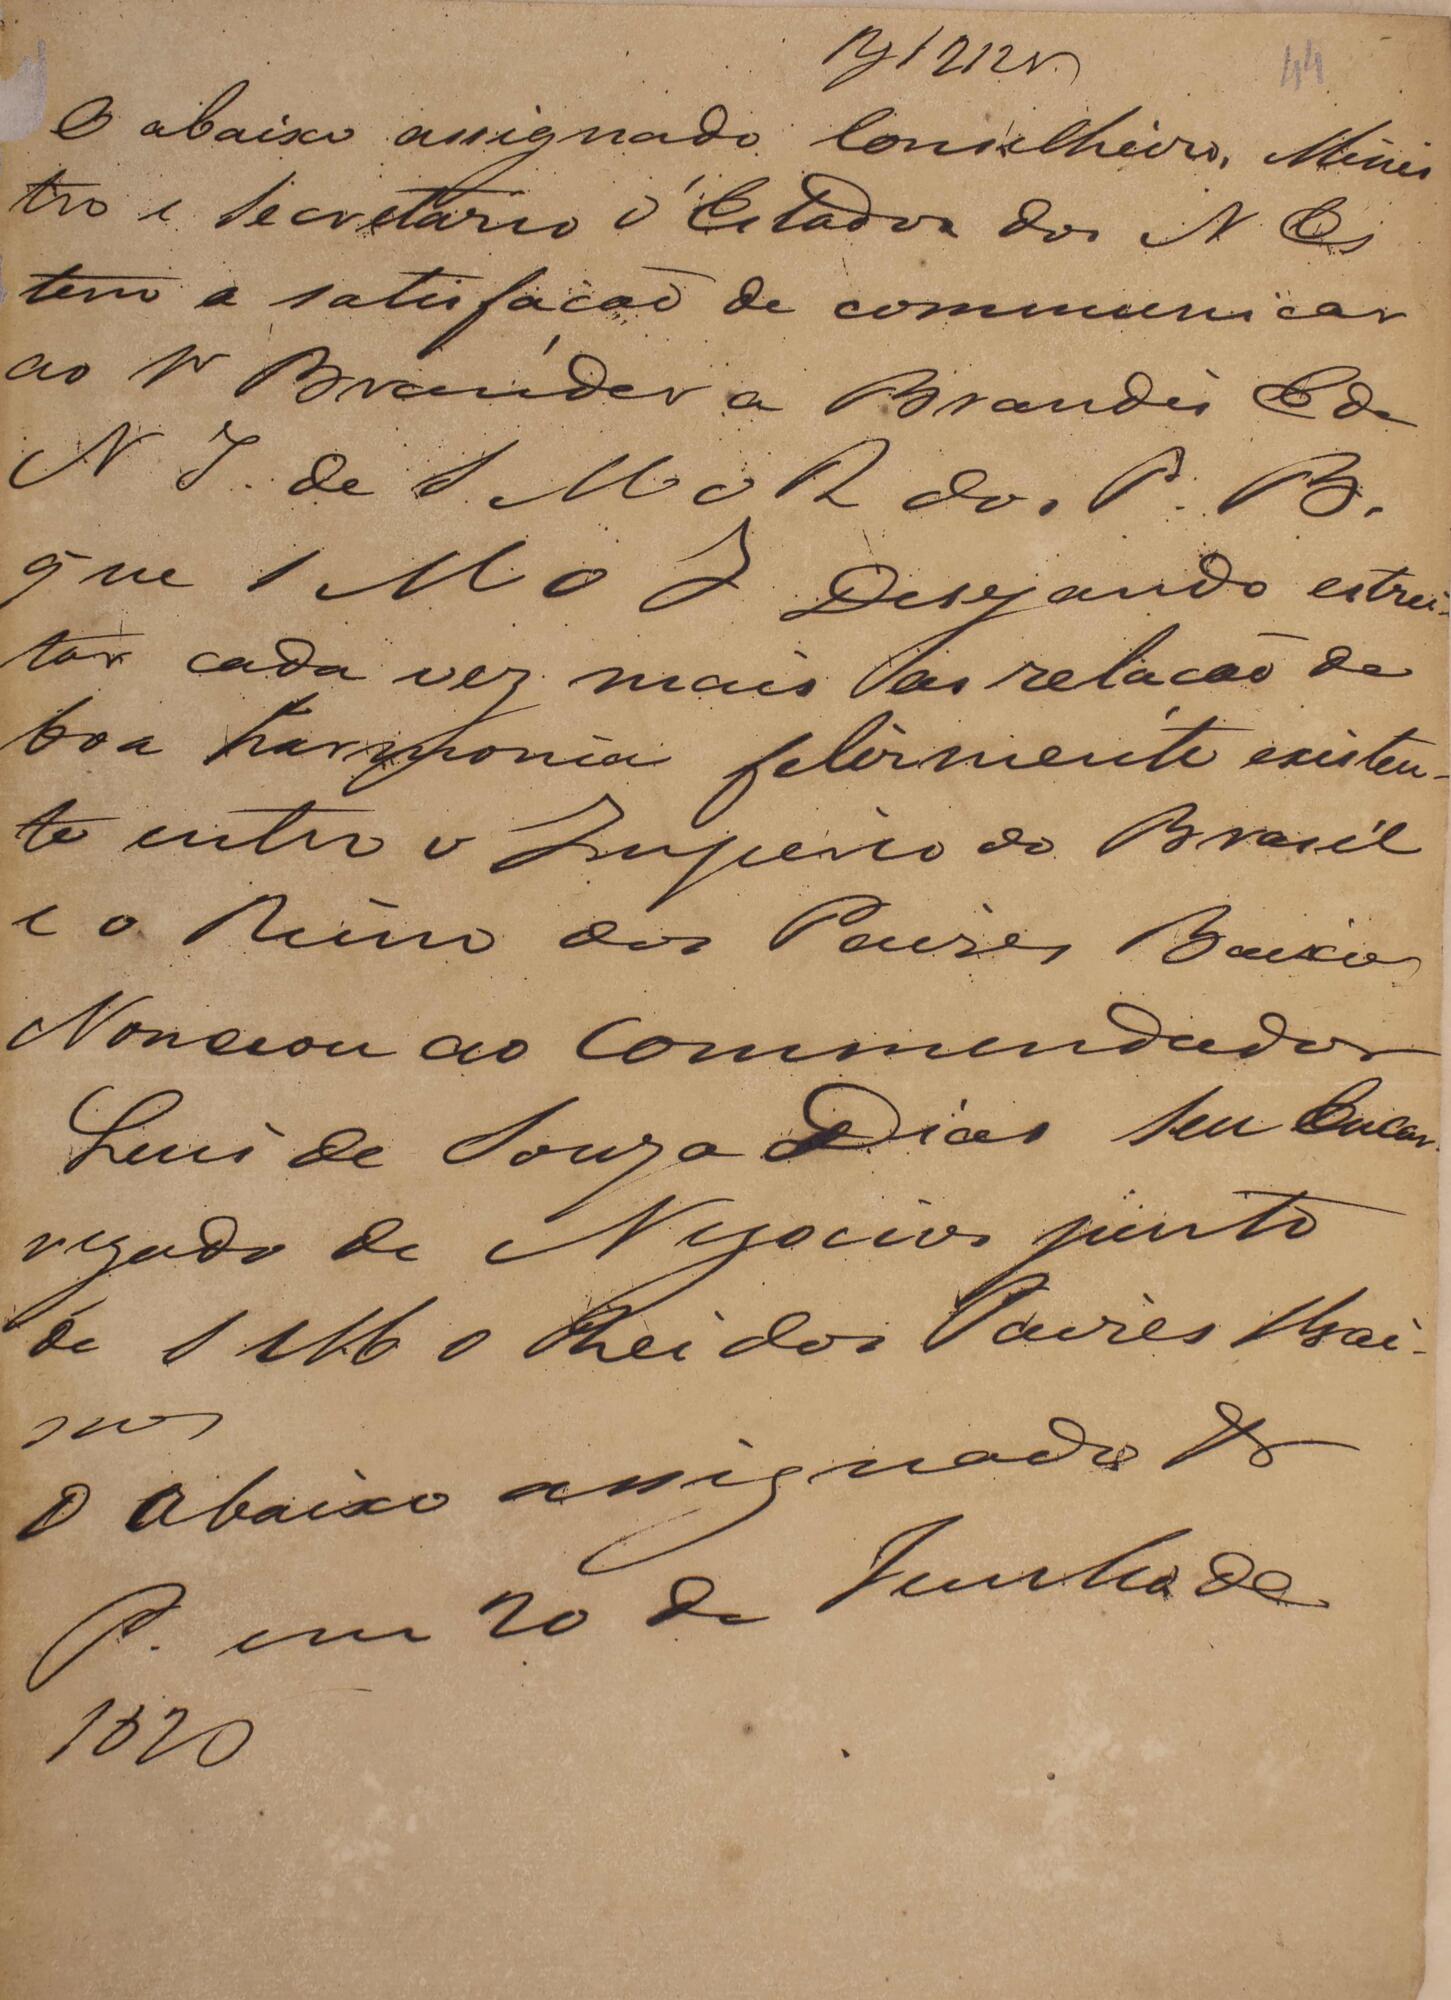 44
O abaixo assignado Conselheiro, Minis
tro e Secretario d'Estado dos N Es
tem a satisfacaõ de communicar
ao Sr Brander a Brandis E de
N I. de S M o R dos P. B.
que S M o I Desejando estrei-
tar cada vez mais as relacaõ de
boa harmonia felismente existen-
te entre o Imperio do Brasil
e o Reino dos Paizes Baixos
Nomeou ao Commendador
Luis de Souza Dias seu Encar-
regado de Negocios junto
de S M o Rei dos Paizes Bai-
xos
O Abaixo assignado &
P. em 20 de Junho de
1820